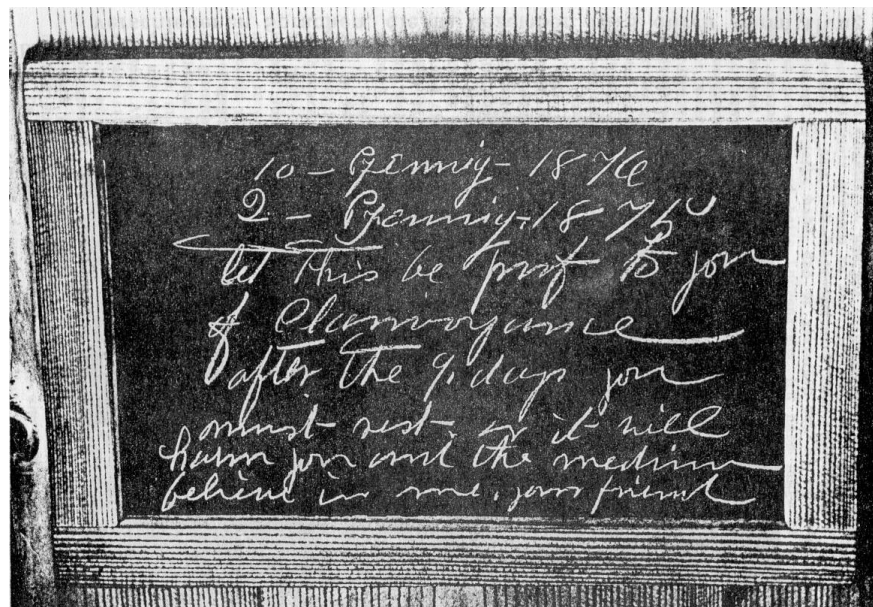 10 - Pfennig - 1876
2 - Pfennig - 1875
let this be proof to you
of Clairvoyance
after the 9. days you
must rest, or it will
harm you and the medium
believe in me, your friend